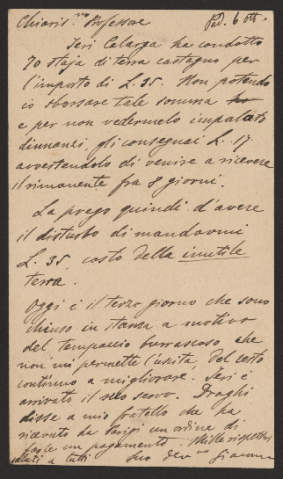 Chiaris.mo Professore Pad. 6 ott.
Ieri Calarga ha condotto
70 staja di terra castagno per
l'importo di L. 35. Non potendo
io sborsare tale somma
e per non vedermelo impalato
dinnanzi, gli consegnai L. 17
avvertendolo di venire a ricevere
il rimanente fra 8 giorni.
La prego quindi d'avere
il disturbo di mandarmi
L. 35, costo della inutile
terra.
Oggi è il terzo giorno che sono
chiuso in stanza a motivo
del tempaccio burrascoso che
non mi permette l'uscita. Del resto
continuo a migliorare. Ieri è
arrivato il servo. Draghi
disse a mio fratello che ha
ricevuto da Parigi un ordine di
fare un pagamento. Mille rispettosi
saluti a tutti Suo dev.mo